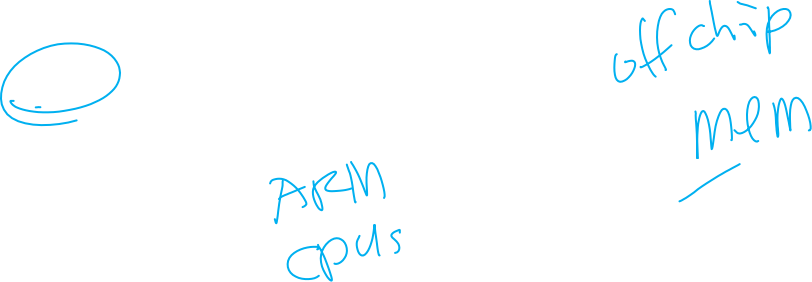 off chip
mem
ARM
cpus